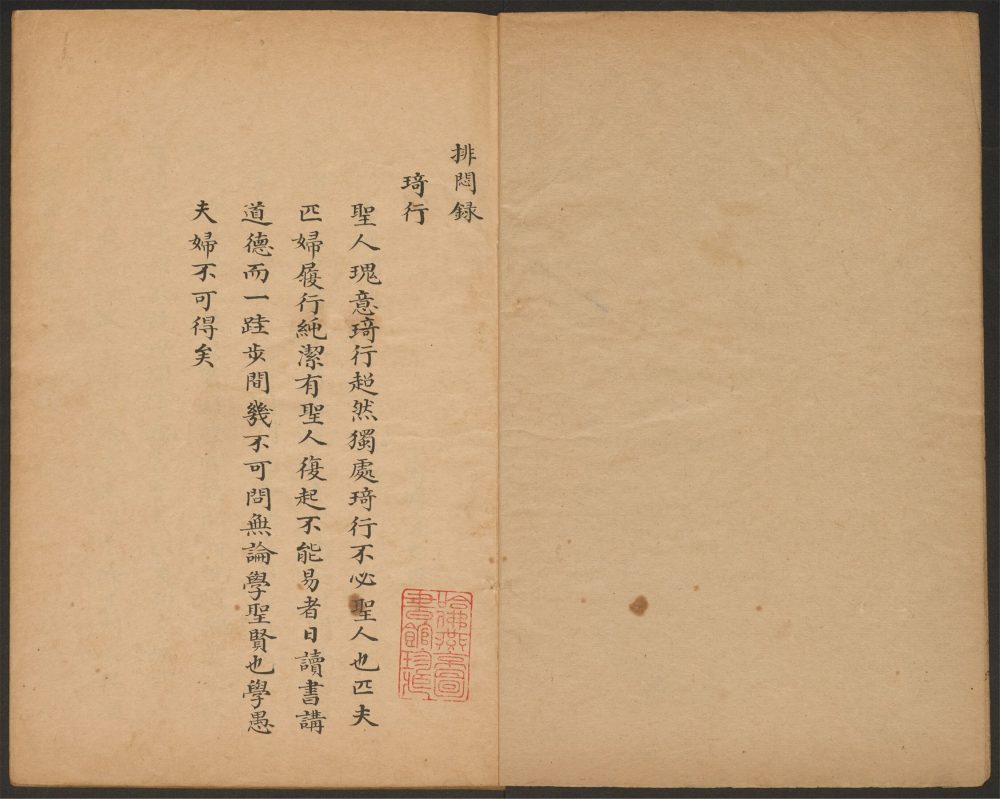 排悶録
琦行
聖人瑰意琦行超然獨處琦行不必聖人也匹夫
匹婦履行純潔有聖人復起不能易者日讀書講
道德而一跬步間幾不可問無論學聖賢也學愚
夫婦不可得矣
哈佛燕京圖
書館珍藏